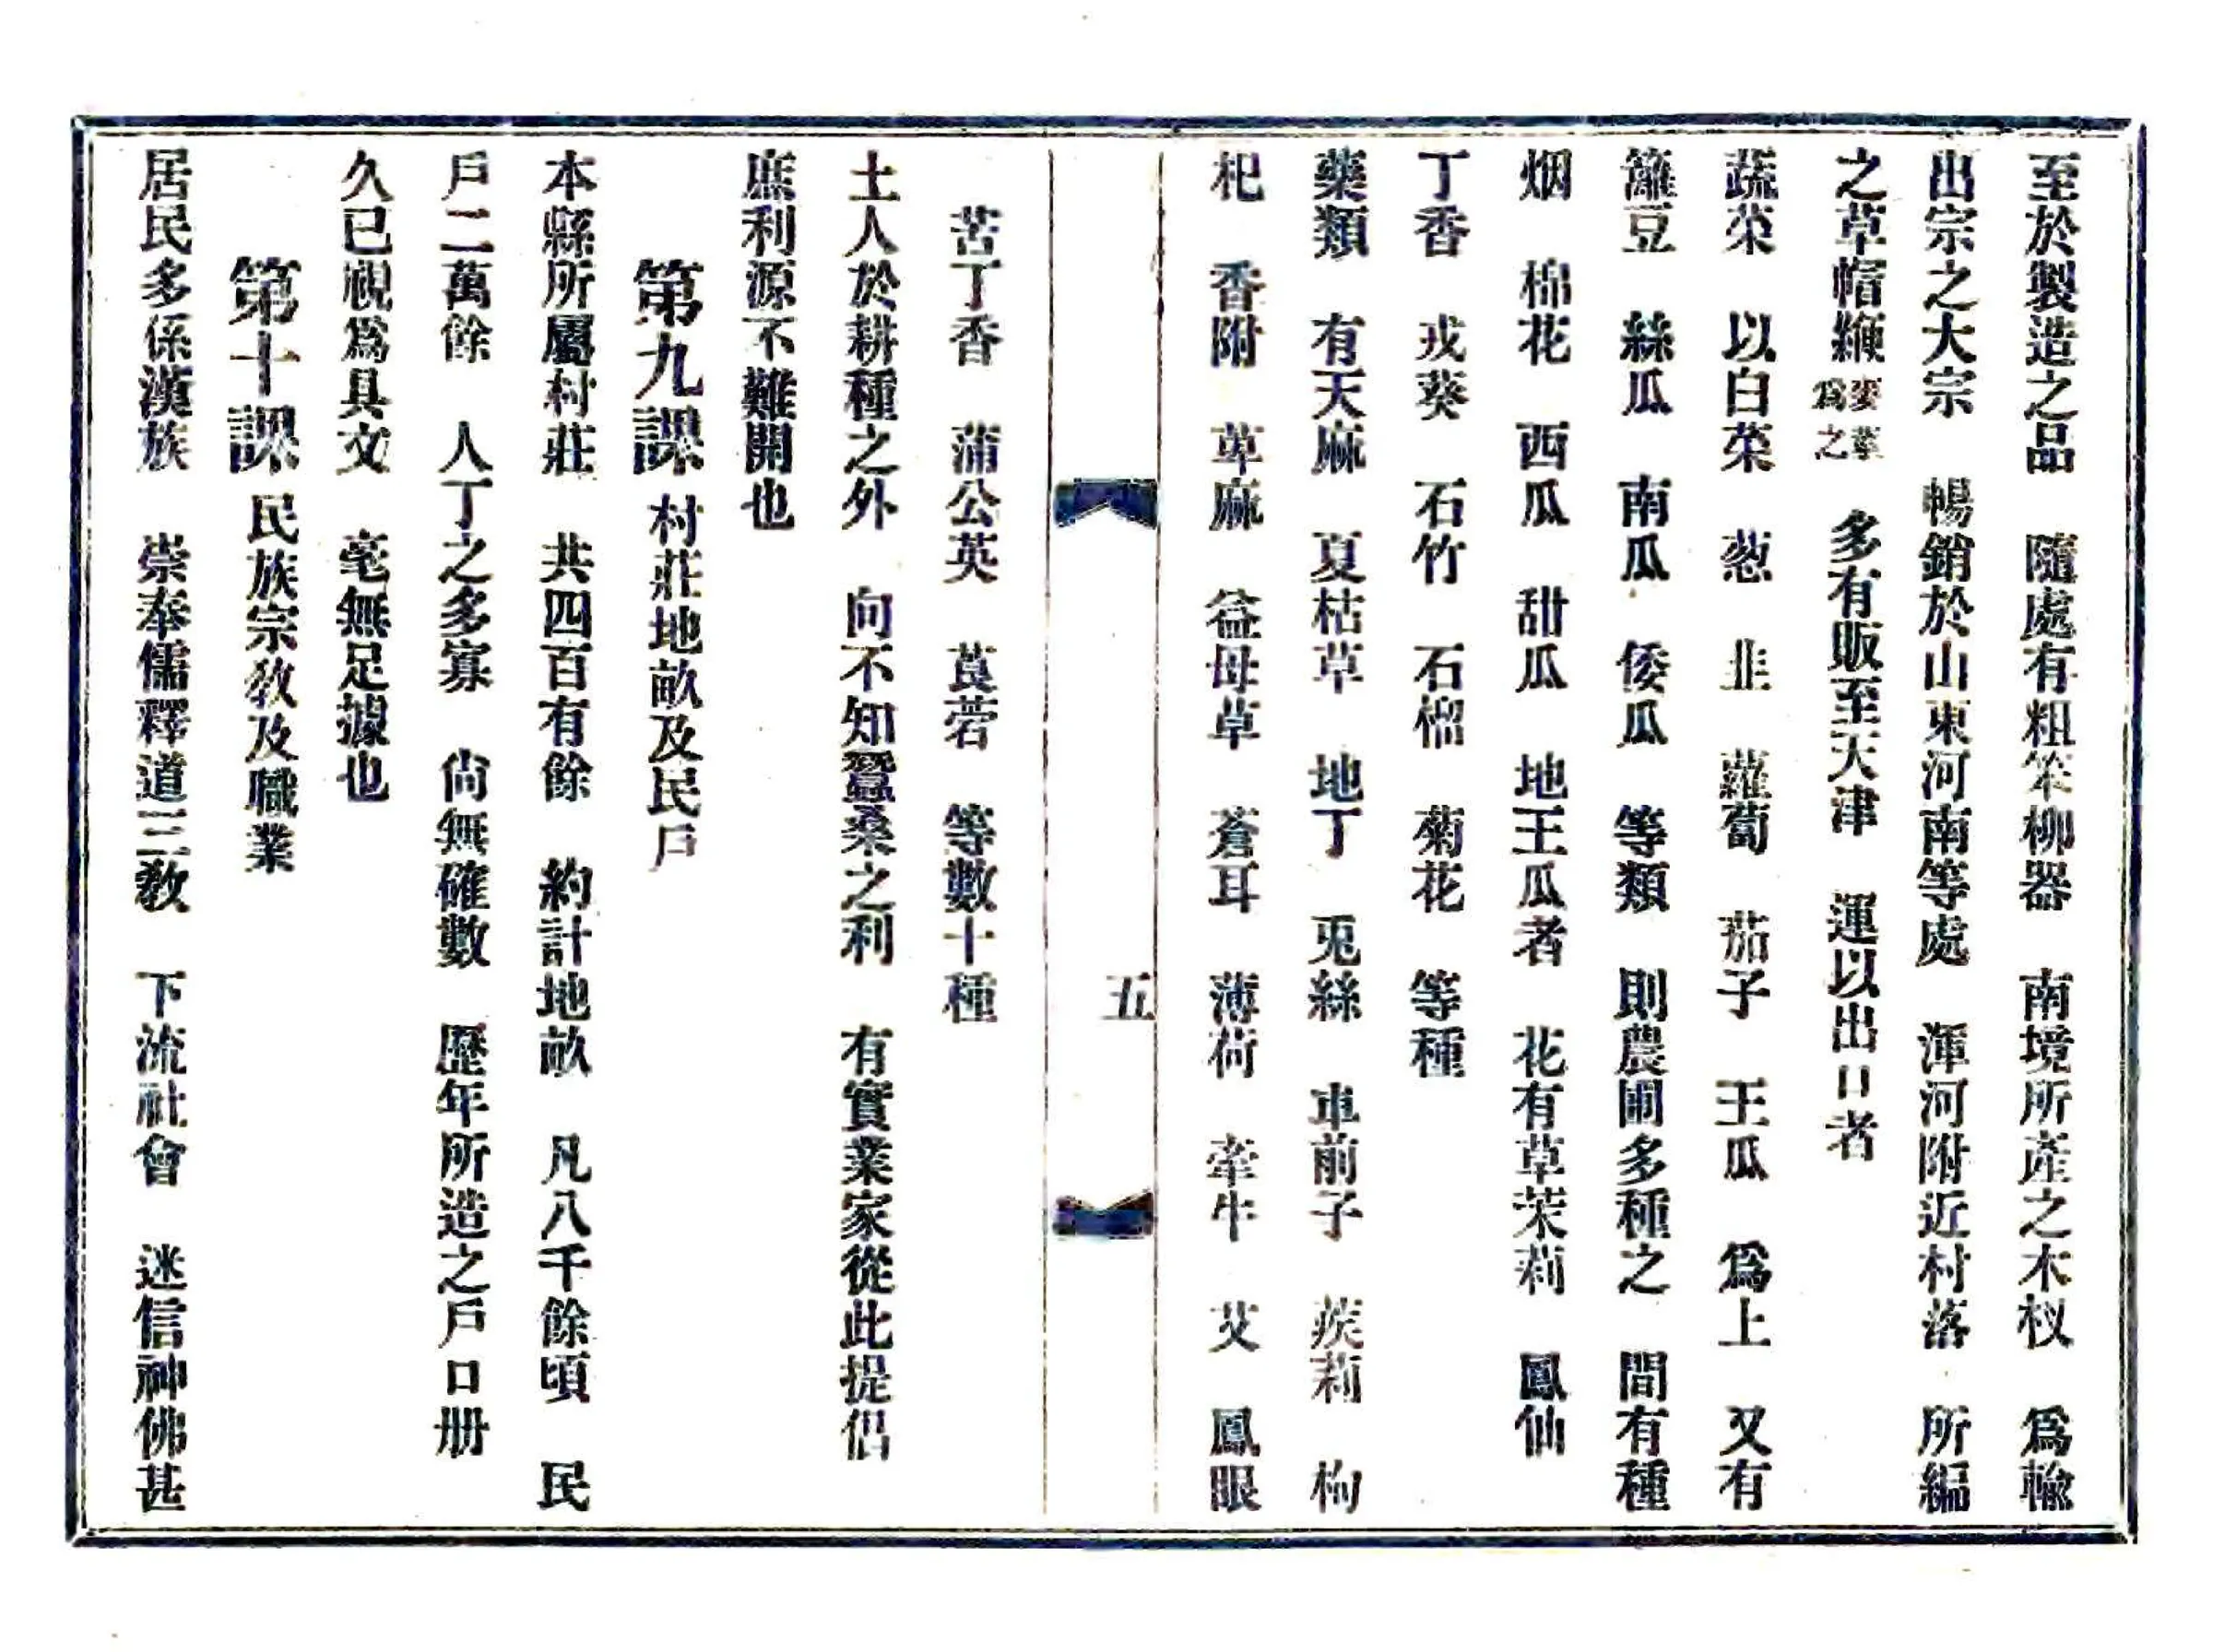 至於製造之品　隨處有粗笨柳器　南境所產之木杈　爲輸
出宗之大宗　暢銷於山東河南等處　渾河附近村落　所編
之草帽緶麥草爲之　多有販至天津　運以出口者
蔬菜　以白菜　葱　韭　蘿蔔　茄子　王瓜　爲上　又有
籬豆　絲瓜　南瓜　倭瓜　等類　則農圃多種之　間有種
烟　棉花　西瓜　甜瓜　地王瓜者　花有草茉莉　鳳仙
丁香　戎葵　石竹　石榴　菊花　等種
藥類　有天麻　夏枯草　地丁　兎絲　車前子　蒺莉　枸
杞　香附　萆麻　益母草　蒼耳　薄荷　牽牛　艾　鳳眼
五
苦丁香　蒲公英　莨菪　等數十種
土人於耕種之外　向不知蠶桑之利　有實業家從此提倡
庶利源不難開也
第九課 村莊地畝及民戶
本縣所屬村莊　共四百有餘　約計地畝　凡八千餘頃　民
戶二萬餘　人丁之多寡　尙無確數　歷年所造之戶口册
久已視爲具文　毫無足據也
第十課 民族宗敎及職業
居民多係漢族　崇奉儒釋道三敎　下流社會　迷信神佛甚